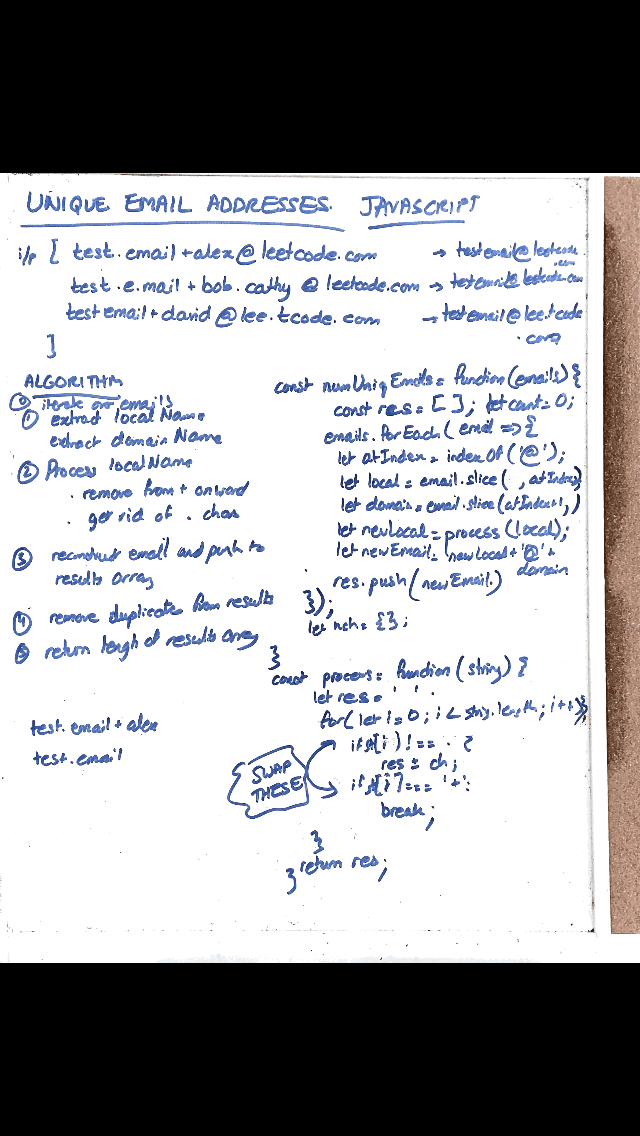 UNIQUE EMAIL ADDRESSES. JAVASCRIPT
i/p [ test.email+alex@leetcode.com → testemail@leetcode.com
test.e.mail+bob.cathy@leetcode.com → testemail@leetcode.com
testemail+david@lee.tcode.com → testemail@lee.tcode.com
]
ALGORITHM
⓪ iterate over emails
① extract localName
extract domain Name
② Process localName
. remove from + onward
. get rid of . chars
③ reconstruct email and push to
results array
④ remove duplicates from results
⑤ return length of results array
test.email+alex
test.email
const numUniqEmails = function(emails) {
const res = [ ]; let count = 0;
emails.forEach( email => {
let atIndex = indexOf('@');
let local = email.slice( , atIndex)
let domain = email.slice(atIndex+1, )
let newLocal = process(local);
let newEmail = newLocal + '@' +
domain
res.push(newEmail)
});
let hsh = {};
}
const process = function(string) {
let res = ' '
for(let i=0; i < string.length; i++) {
if s[i] !== . {
res += ch;
if s[i] === '+':
break;
SWAP
THESE
}
return res;
}